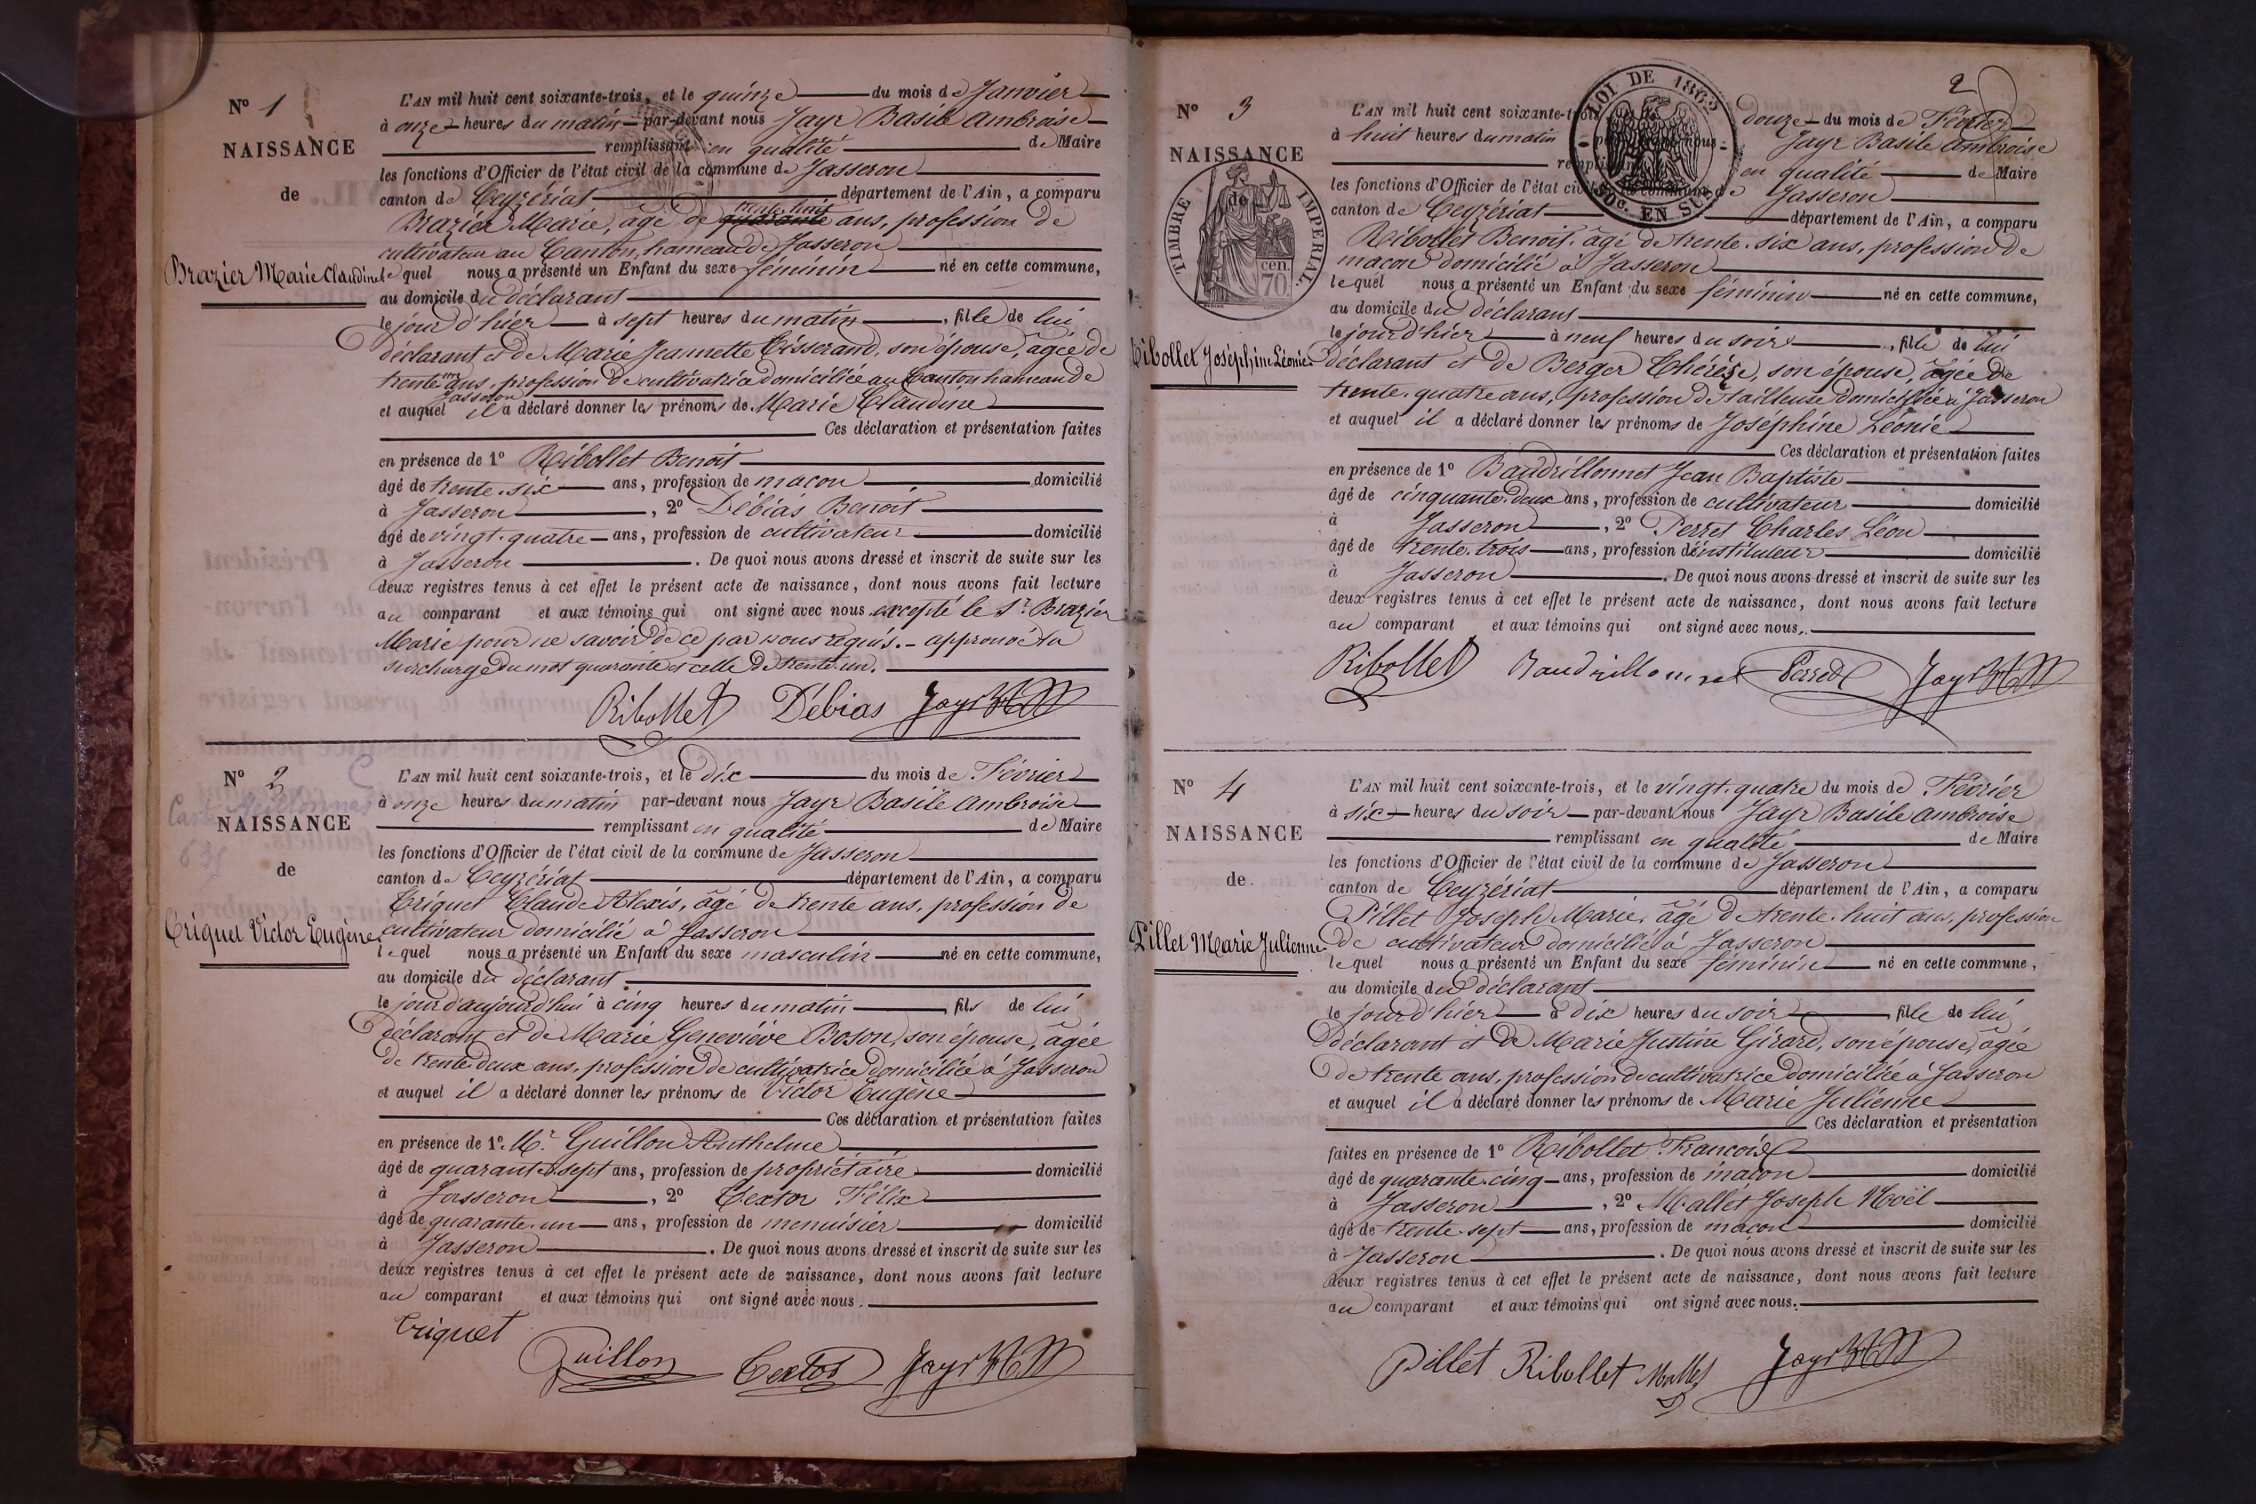 N° 1
NAISSANCE
de
Brazier Marie Claudine
L'AN mil huit cent soixante-trois, et le quinze du mois de Janvier
à onze heures du matin par-devant nous Jayr Basile Ambroise
remplissant en qualité de Maire
les fonctions d'Officier de l'état civil de la commune de Jasseron
canton de Ceyzériat département de l'Ain, a comparu
trente huit
Brazier Marie, âgé de quarante ans, profession de
cultivateur au Canton, hameau de Jasseron
lequel nous a présenté un Enfant du sexe féminin né en cette commune,
au domicile du déclarant
le jour d'hier à sept heures du matin, fille de lui
déclarant et de Marie Jeannette Tisserand, son épouse, âgée de
trente un ans, profession de cultivatrice domiciliée au Canton hameau de
Jasseron
et auquel il a déclaré donner les prénoms de Marie Claudine
Ces déclaration et présentation faites
en présence de 1° Ribollet Benoit
âgé de trente-six ans, profession de maçon domicilié
à Jasseron, 2° Débias Benoit
âgé de vingt-quatre ans, profession de cultivateur domicilié
à Jasseron. De quoi nous avons dressé et inscrit de suite sur les
deux registres tenus à cet effet le présent acte de naissance, dont nous avons fait lecture
au comparant et aux témoins qui ont signé avec nous excepté le Sr Brazier
Marie pour ne savoir de ce par nous requis. - approuvé la
surcharge du mot quarante et celle de trente un.
Ribollet Débias Jayr
N° 2
NAISSANCE
de
Triquet Victor Eugène
L'AN mil huit cent soixante-trois, et le dix du mois de Février
à onze heures du matin par-devant nous Jayr Basile Ambroise
remplissant en qualité de Maire
les fonctions d'Officier de l'état civil de la commune de Jasseron
canton de Ceyzériat département de l'Ain, a comparu
Triquet Claude Alexis, âgé de trente ans, profession de
cultivateur domicilié à Jasseron
lequel nous a présenté un Enfant du sexe masculin né en cette commune,
au domicile du déclarant
le jour d'aujourd'hui à cinq heures du matin, fils de lui
déclarant et de Marie Geneviève Boson, son épouse, âgée
de trente deux ans, profession de cultivatrice domiciliée à Jasseron
et auquel il a déclaré donner les prénoms de Victor Eugène
Ces déclaration et présentation faites
en présence de 1° Mr Guillon Anthelme
âgé de quarante-sept ans, profession de propriétaire domicilié
à Jasseron, 2° Textor Félix
âgé de quarante-un ans, profession de menuisier domicilié
à Jasseron. De quoi nous avons dressé et inscrit de suite sur les
deux registres tenus à cet effet le présent acte de naissance, dont nous avons fait lecture
au comparant et aux témoins qui ont signé avec nous.
Triquet
Guillon Textor Jayr
2
N° 3
NAISSANCE
de
TIMBRE IMPERIAL
70 cen.
LOI DE 1862
DEC. EN SUS
Ribollet Joséphine Léonie
L'AN mil huit cent soixante-trois douze du mois de Février
à huit heures du matin par-devant nous Jayr Basile Ambroise
remplissant en qualité de Maire
les fonctions d'Officier de l'état civil de la commune de Jasseron
canton de Ceyzériat département de l'Ain, a comparu
Ribollet Benoit, âgé de trente-six ans, profession de
maçon domicilié à Jasseron
lequel nous a présenté un Enfant du sexe féminin né en cette commune,
au domicile du déclarant
le jour d'hier à neuf heures du soir, fille de lui
déclarant et de Berger Thérèse, son épouse, âgée de
trente-quatre ans, profession de tailleuse domiciliée à Jasseron
et auquel il a déclaré donner les prénoms de Joséphine Léonie
Ces déclaration et présentation faites
en présence de 1° Baudrillonnet Jean Baptiste
âgé de cinquante-deux ans, profession de cultivateur domicilié
à Jasseron, 2° Perret Charles Léon
âgé de trente-trois ans, profession d'instituteur domicilié
à Jasseron. De quoi nous avons dressé et inscrit de suite sur les
deux registres tenus à cet effet le présent acte de naissance, dont nous avons fait lecture
au comparant et aux témoins qui ont signé avec nous.
Ribollet Baudrillonnet Perret Jayr
N° 4
NAISSANCE
de
Pillet Marie Julienne
L'AN mil huit cent soixante-trois, et le vingt-quatre du mois de Février
à six heures du soir par-devant nous Jayr Basile Ambroise
remplissant en qualité de Maire
les fonctions d'Officier de l'état civil de la commune de Jasseron
canton de Ceyzériat département de l'Ain, a comparu
Pillet Joseph Marie, âgé de trente-huit ans, profession
de cultivateur domicilié à Jasseron
lequel nous a présenté un Enfant du sexe féminin né en cette commune,
au domicile du déclarant
le jour d'hier à dix heures du soir, fille de lui
déclarant et de Marie Justine Girard, son épouse, âgée
de trente ans, profession de cultivatrice domiciliée à Jasseron
et auquel il a déclaré donner les prénoms de Marie Julienne
Ces déclaration et présentation
faites en présence de 1° Ribollet François
âgé de quarante-cinq ans, profession de maçon domicilié
à Jasseron, 2° Mallet Joseph Noël
âgé de trente-sept ans, profession de maçon domicilié
à Jasseron. De quoi nous avons dressé et inscrit de suite sur les
deux registres tenus à cet effet le présent acte de naissance, dont nous avons fait lecture
au comparant et aux témoins qui ont signé avec nous.
Pillet Ribollet Mallet Jayr